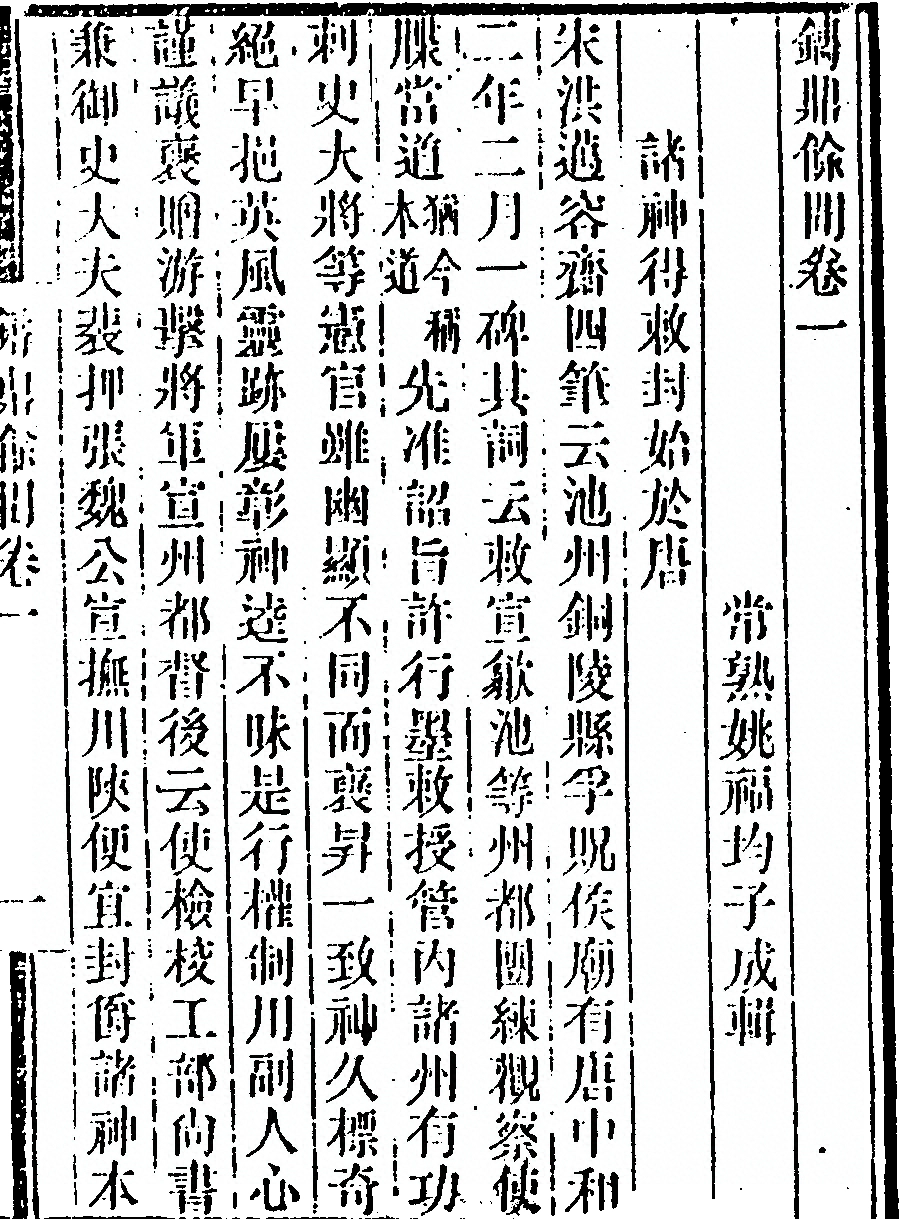 鑄鼎餘聞卷一
常熟姚福均子成輯
諸神得敕封始於唐
宋洪邁容齋四筆云池州銅陵縣孚貺侯廟有唐中和
二年二月一碑其詞云敕宣歙池等州都團練觀察使
牒當道猶今稱本道先准詔旨許行墨敕授管內諸州有功
刺史大將等憲官雖幽顯不同而襃昇一致神久標奇
絕早挹英風靈跡屢彰神逵不昧是行權制用副人心
謹議襃贈游擊將軍宣州都督後云使檢校工部尚書
兼御史大夫裴押張魏公宣撫川陝便宜封爵諸神本
鑄鼎餘聞卷一
一